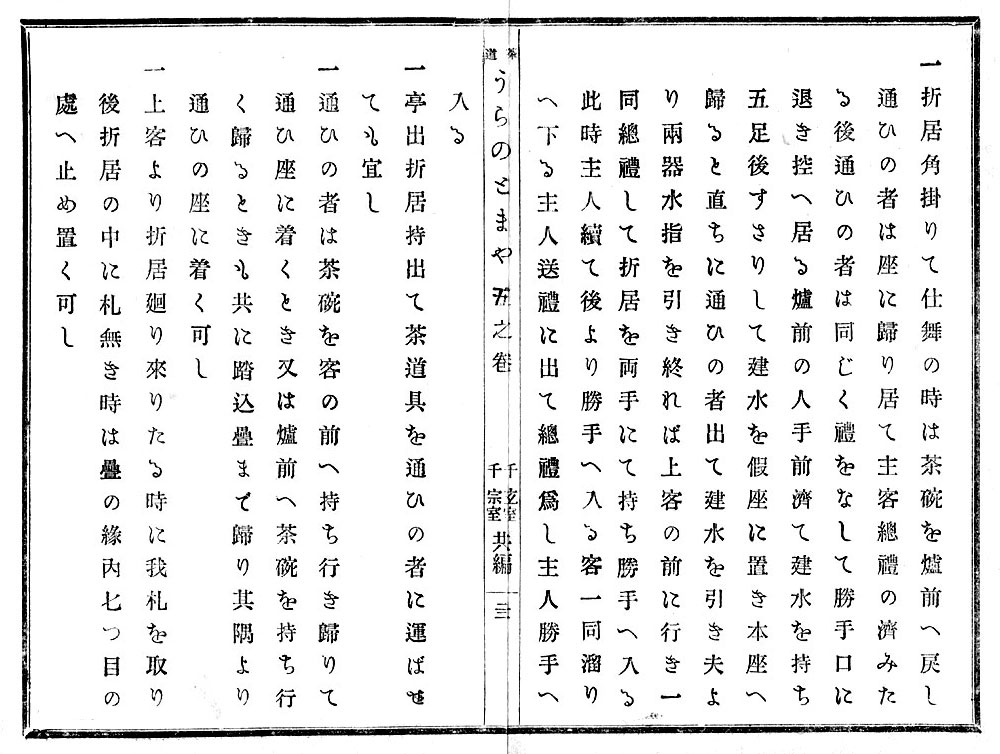 一折居角掛りて仕舞の時は茶碗を爐前へ戻し
通ひの者は座に歸り居て主客總禮の濟みた
る後通ひの者は同じく禮をなして勝手口に
退き控へ居る爐前の人手前濟て建水を持ち
五足後すさりして建水を假座に置き本座へ
歸ると直ちに通ひの者出て建水を引き夫よ
り兩器水指を引き終れば上客の前に行き一
同總禮して折居を両手にて持ち勝手へ入る
此時主人續て後より勝手へ入る客一同溜り
へ下る主人送禮に出て總禮爲し主人勝手へ
茶道うらのとまや五之卷
千玄室
千宗室
共編
三
入る
一亭出折居持出て茶道具を通ひの者に運ばせ
ても宜し
一通ひの者は茶碗を客の前へ持ち行き歸りて
通ひ座に着くとき又は爐前へ茶碗を持ち行
く歸るときも共に踏込疊まで歸り其隅より
通ひの座に着く可し
一上客より折居廻り來りたる時に我札を取り
後折居の中に札無き時は疊の緣内七つ目の
處へ止め置く可し